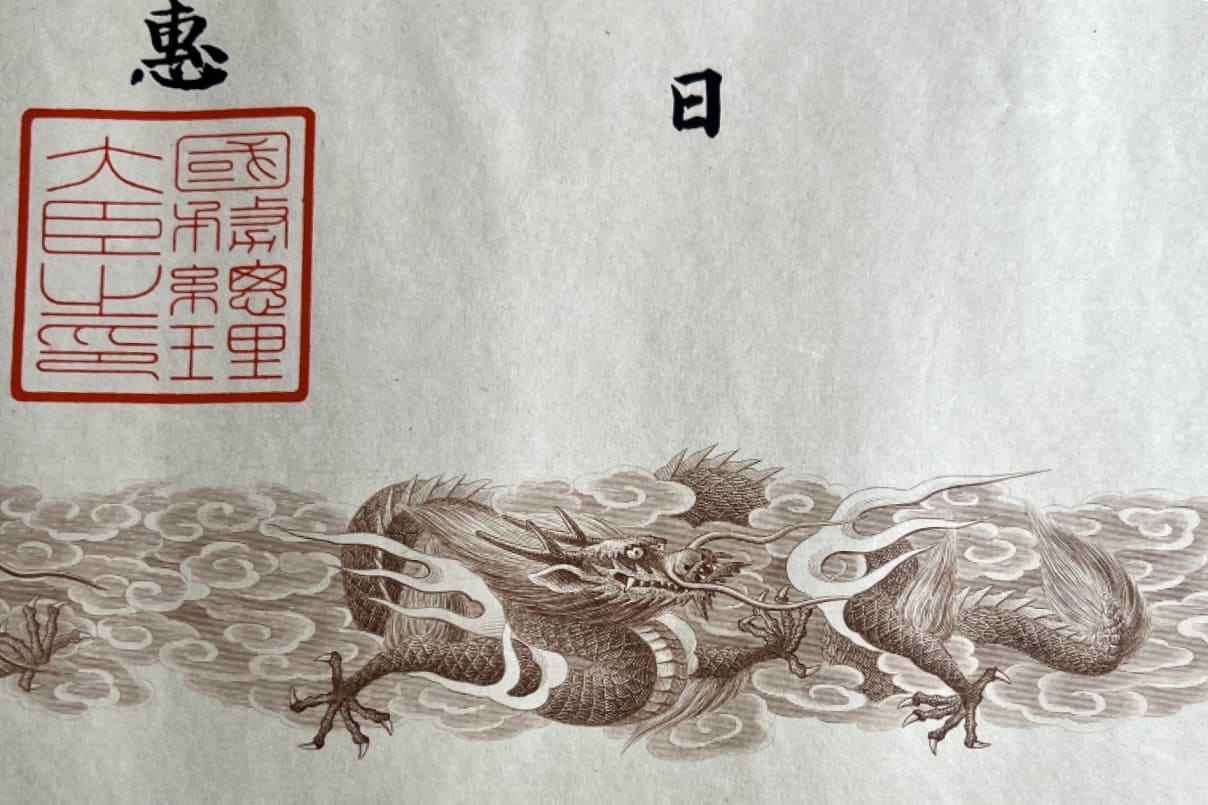 日
惠
國務總理
大臣之印